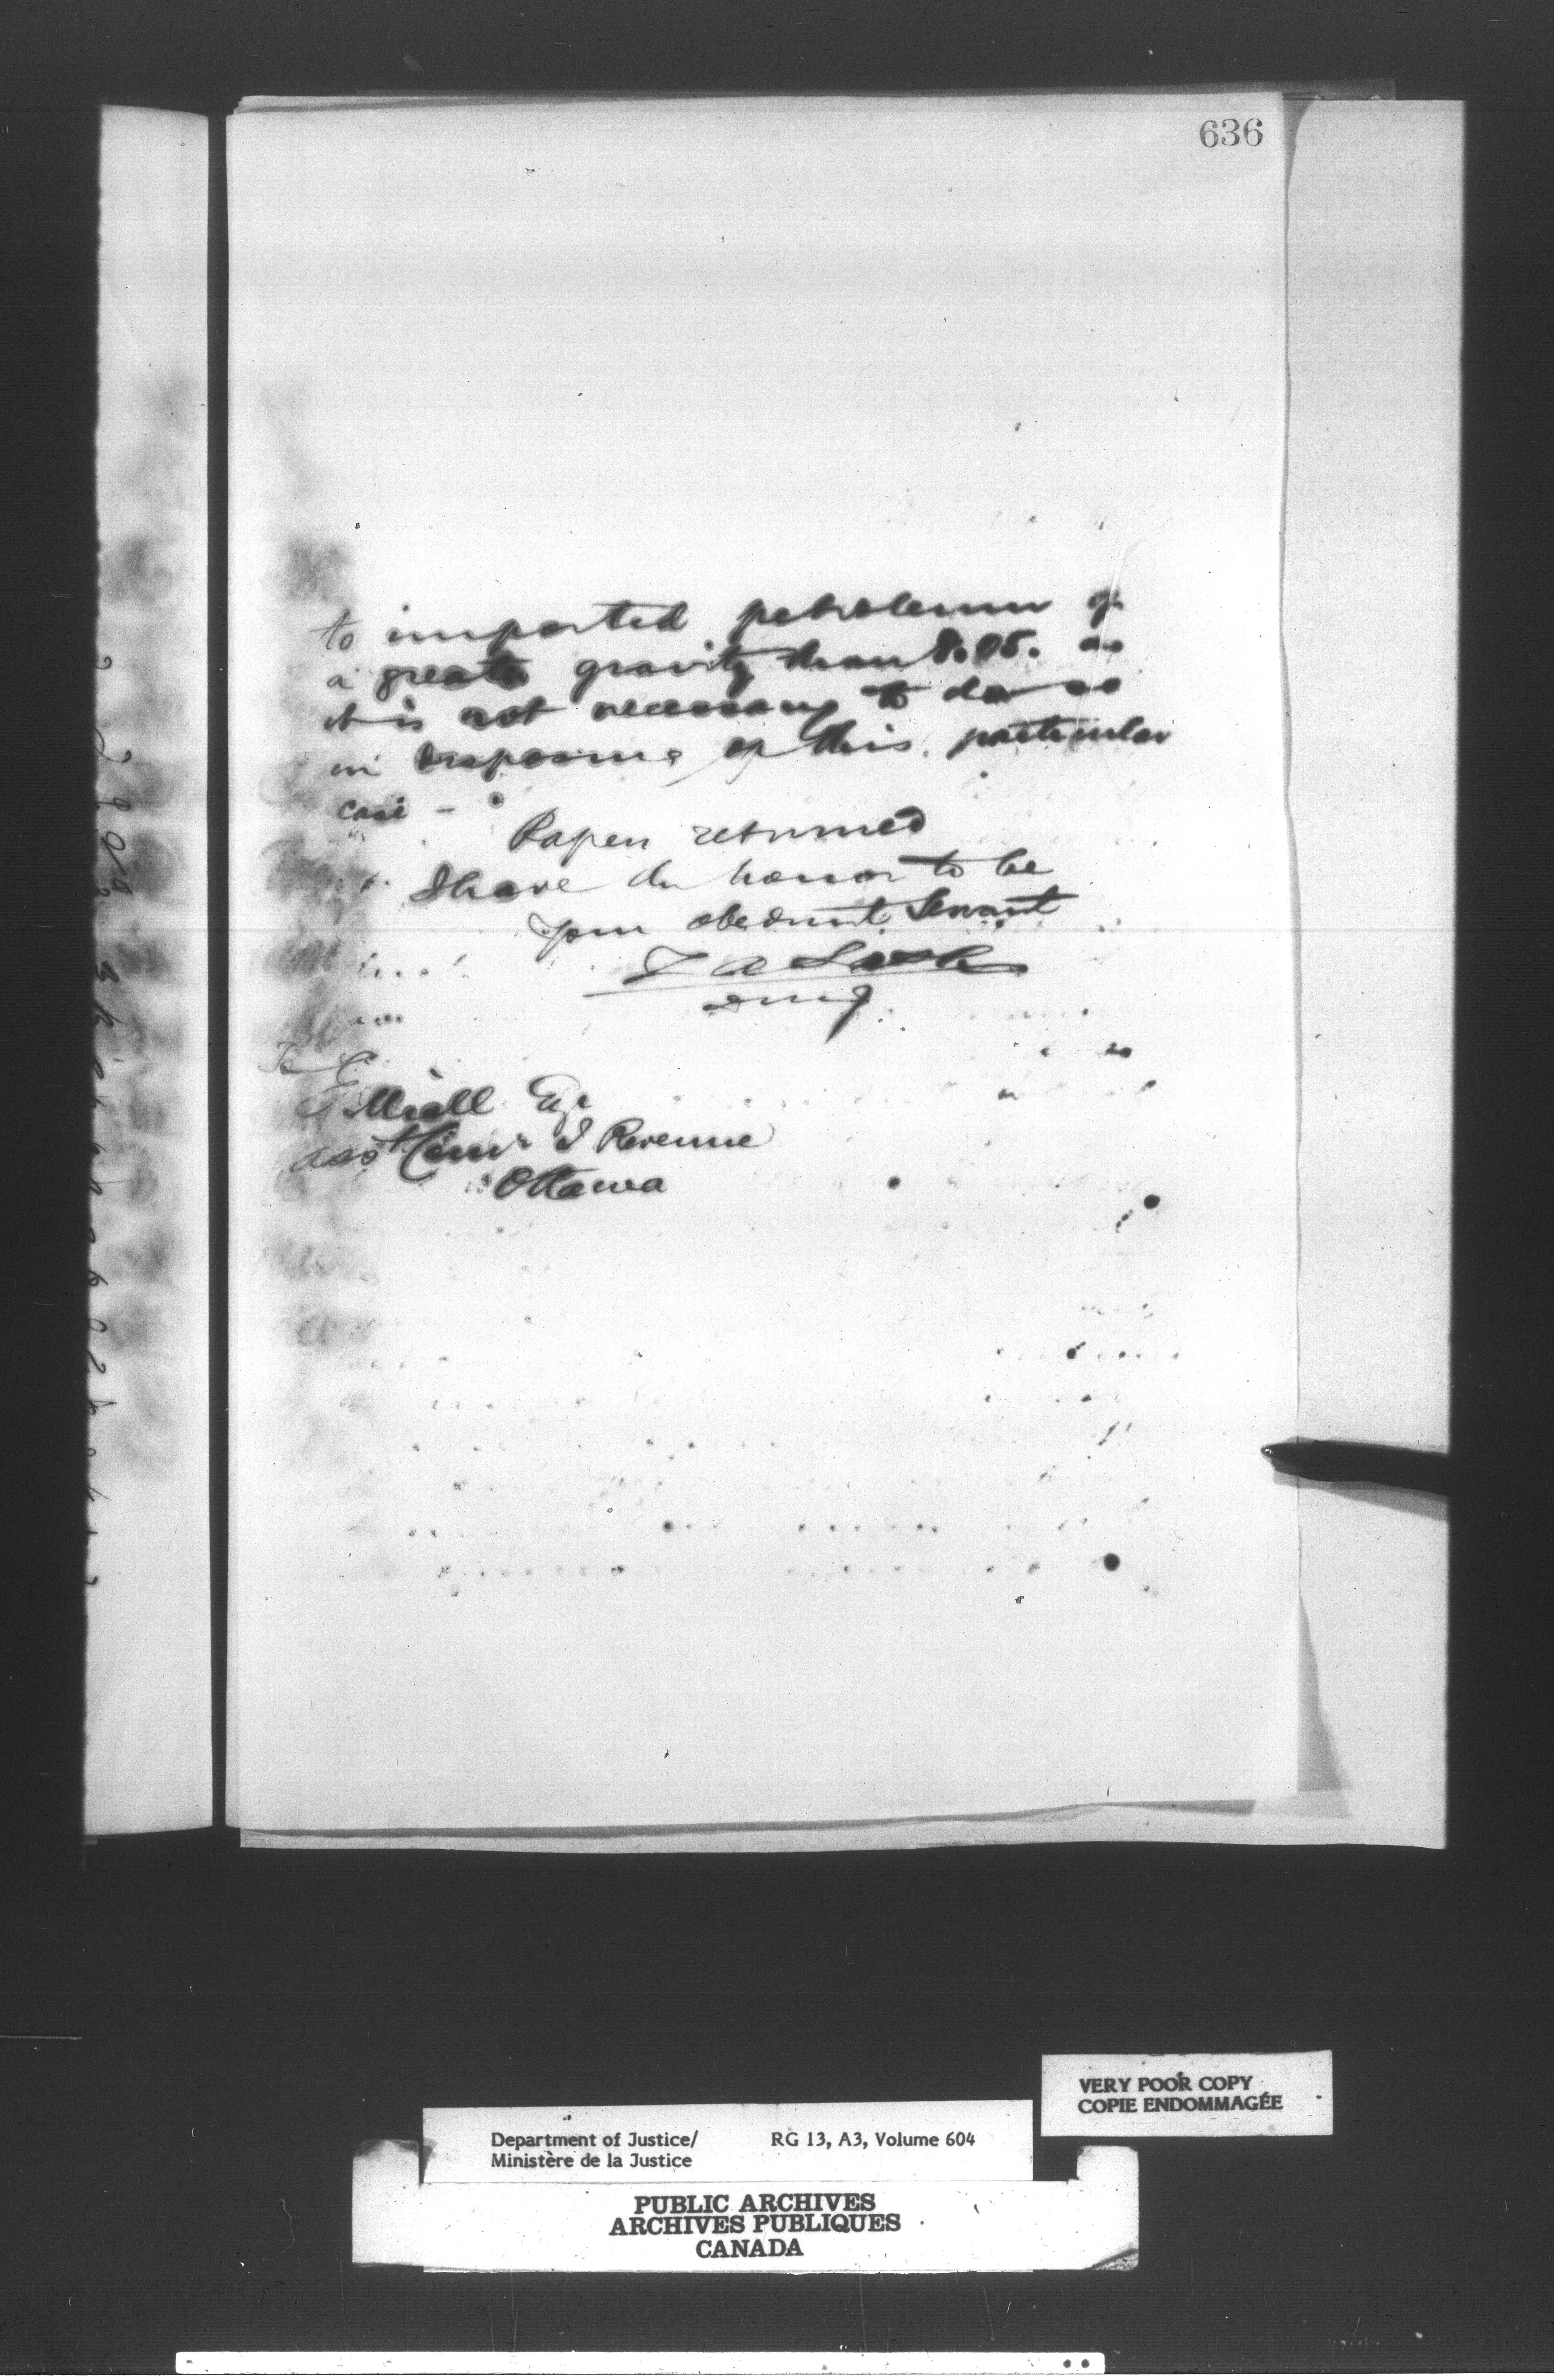 636
to imported petroleum of
a greater gravity than 8.05. as
it is not necessary to do so
in disposing of this particular
case -
Papers returned
I have the honor to be
your obedient Servant
Z A Lash
DMJ
To
E Miall Esqr
asst Comr I Revenue
Ottawa
VERY POOR COPY
COPIE ENDOMMAGÉE
Department of Justice/ RG 13, A3, Volume 604
Ministère de la Justice
PUBLIC ARCHIVES
ARCHIVES PUBLIQUES
CANADA